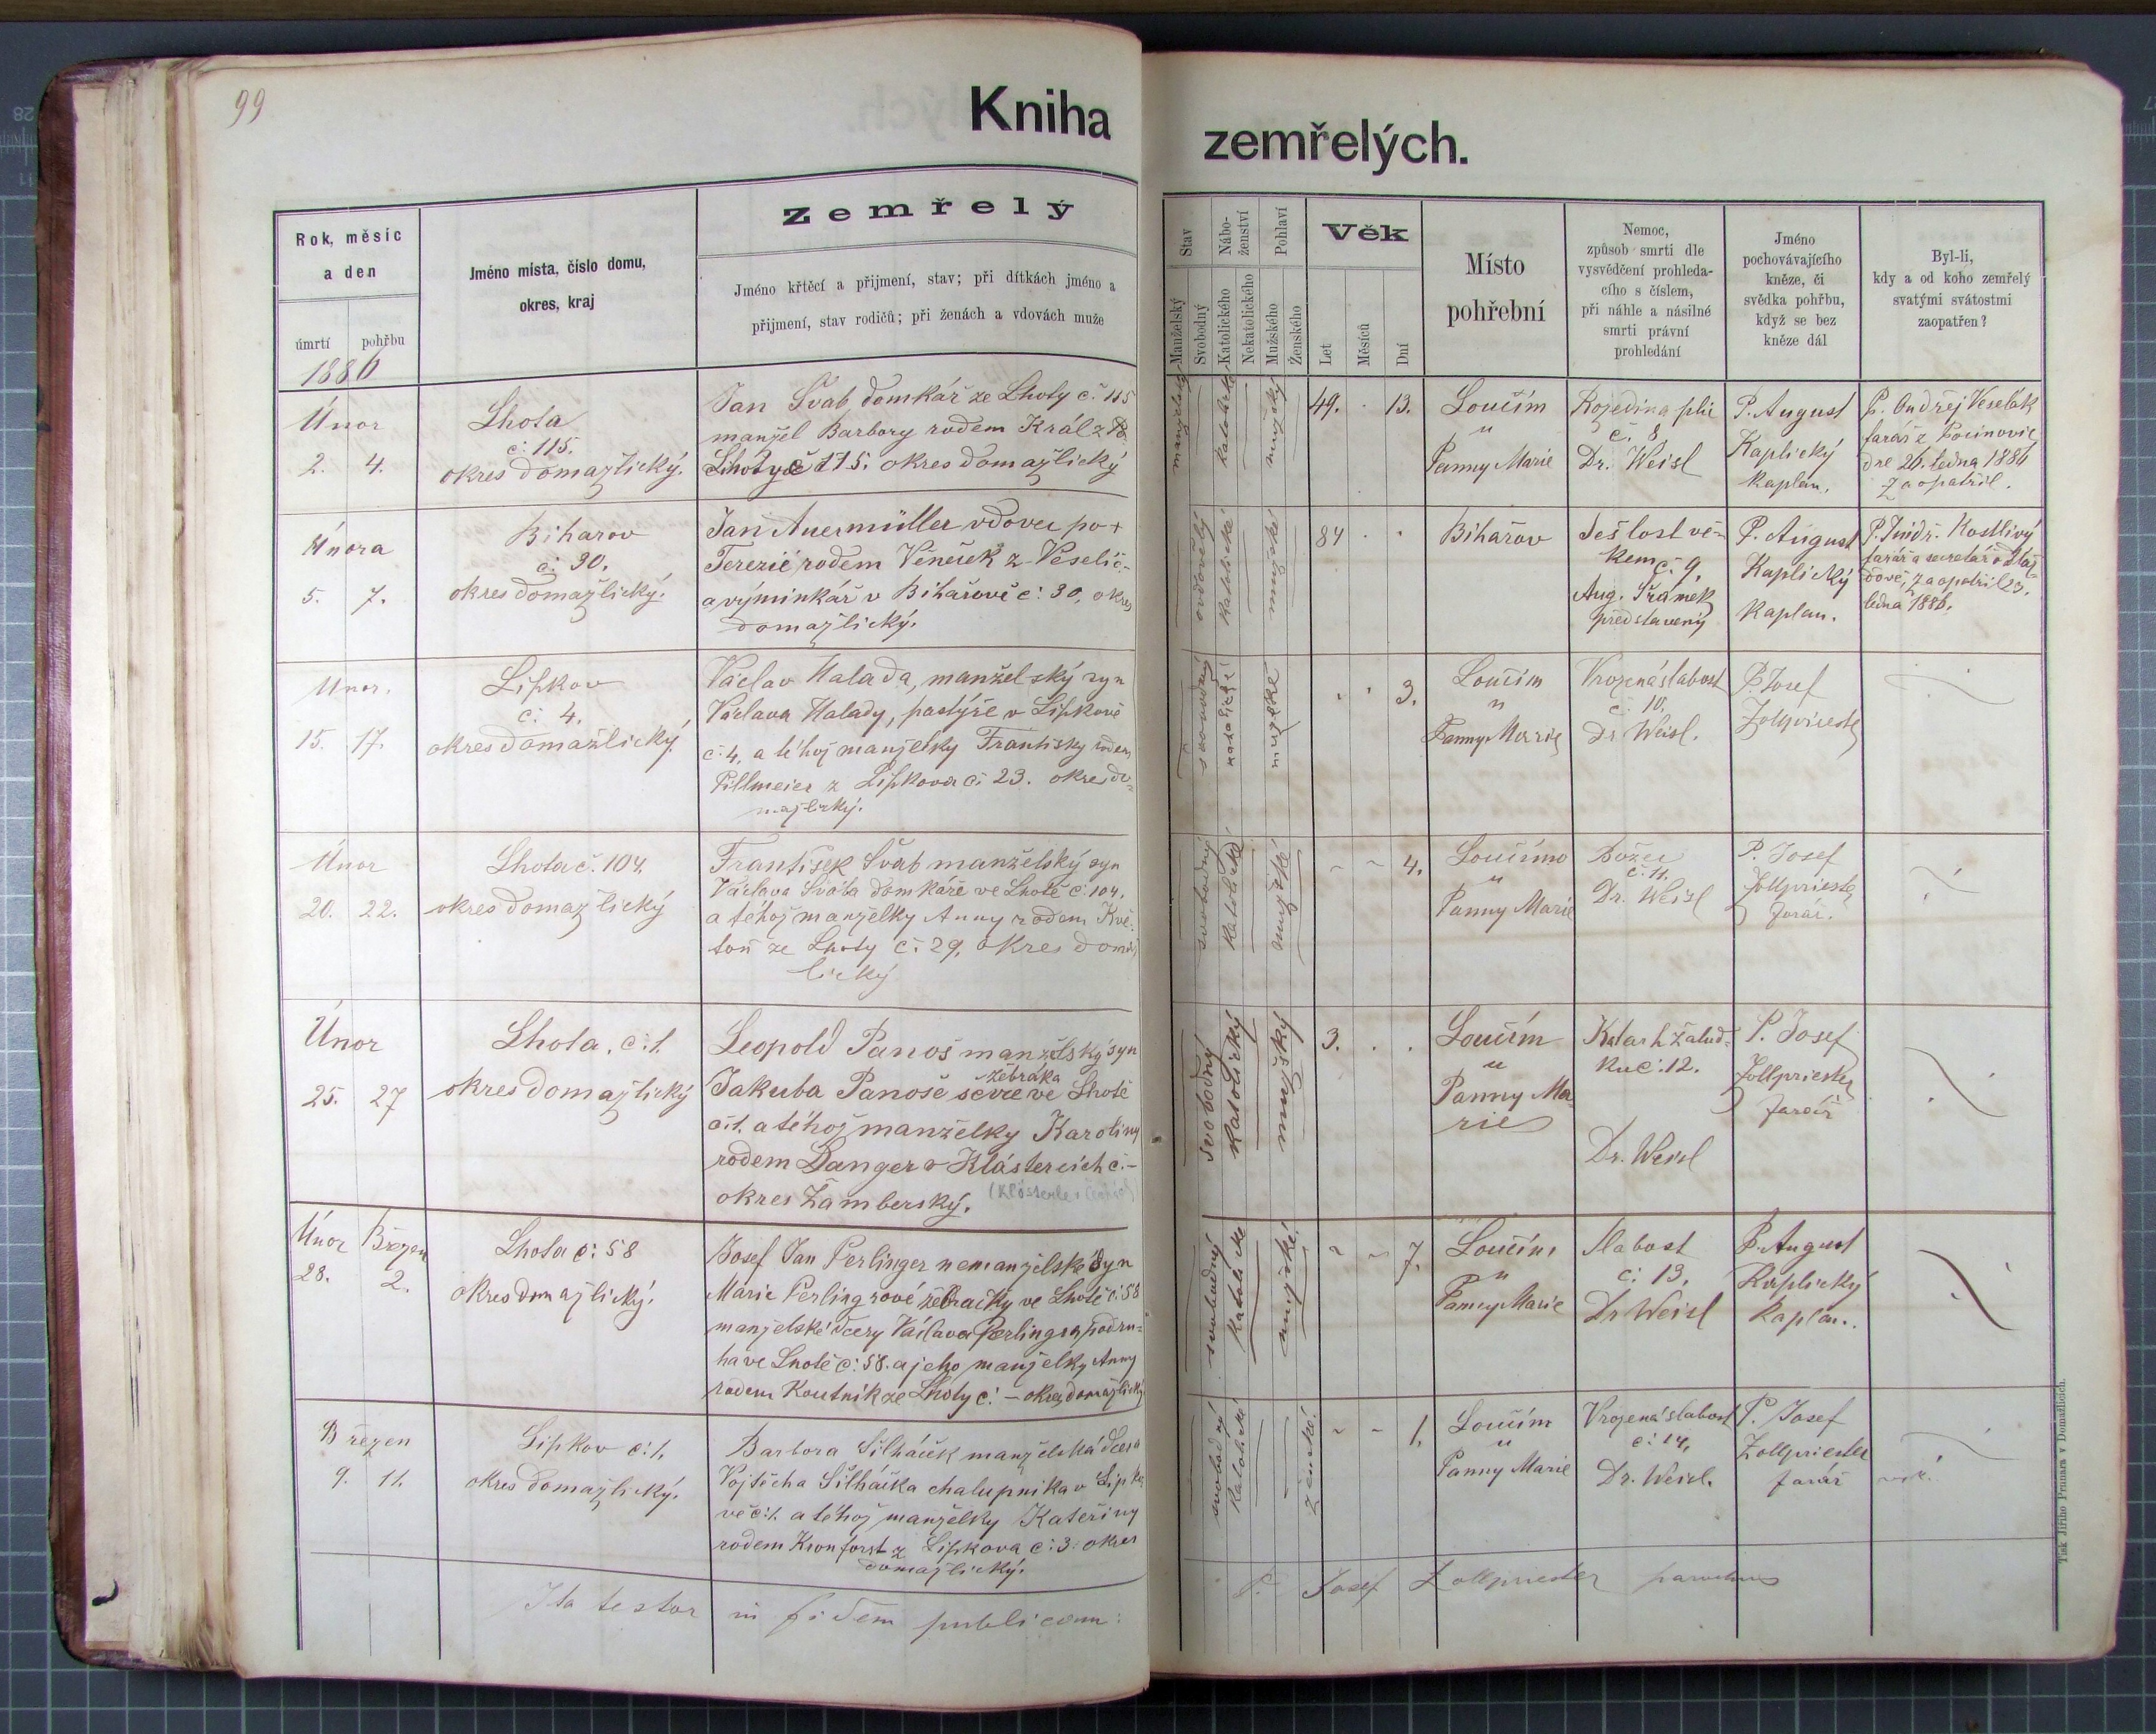 99
Kniha
zemřelých.
Rok, měsíc
a den
úmrtí
pohřbu
Jméno místa, číslo domu,
okres, kraj
Zemřelý
Jméno křtěcí a přijmení, stav; při dítkách jméno a
přijmení, stav rodičů; při ženách a vdovách muže
Stav
Manželský
Svobodný
Nábo-
ženství
Katolického
Nekatolického
Pohlaví
Mužského
Ženského
Věk
Let
Měsíců
Dní
Místo
pohřební
Nemoc,
způsob smrti dle
vysvědčení prohleda-
cího s číslem,
při náhle a násilné
smrti právní
prohledání
Jméno
pochovávajícího
kněze, či
svědka pohřbu,
když se bez
kněze dál
Byl-li,
kdy a od koho zemřelý
svatými svátostmi
zaopatřen?
1886
Únor
2. 4.
Lhota
č: 115.
okres domažlický.
Jan Šváb domkář ze Lhoty č. 115
manžel Barbory rodem Král z
Lhoty č 175. okres domažlický
manželský
katolické
mužský
49. 13.
Loučim
u
Panny Marie
Rozedma plic
č. 8
Dr. Weisl
P. August
Kaplický
kaplan.
P. Ondřej Veselák
farář z Pocinovic
dne 26. ledna 1886
zaopatřil.
Února
5. 7.
Biharov
č: 30.
okres domažlický.
Jan Auermüller vdovec po +
Terezie rodem Věneček z Veselič-
a výminkář v Bihařově č: 30, okres
domažlický.
ovdovělý
katolické
mužské
84
Bihařov
Sešlost vě-
kem č. 9.
Aug. Šrámek
představený
P. August
Kaplický
Kaplan.
P. Jindř. Kostlivý
farář a
zaopatřil 23.
ledna 1886.
Únor.
15. 17.
Lipkov
č: 4.
okres domažlický.
Václav Halada, manželský syn
Václava Halady, pastýře v Lipkově
č: 4. a téhož manželky Františky rodem
Pillmeier z Lipkova č: 23. okres do-
mažlický.
svobodný
katolické
mužské
3.
Loučim
u
Panny Marie
Vrozená slabost
č: 10.
Dr Weisl.
P. Josef
Zollpriester
Únor
20. 22.
Lhota č. 104.
okres domažlický
František Šváb manželský syn
Václava Švába domkáře ve Lhotě č: 104.
a téhož manželky Anny rodem Kvě-
toň ze Lhoty č: 29, okres domaž
lický
svobodný
katolické
mužské
4.
Loučimo
u
Panny Marie
Božec
č: 11.
Dr. Weisl
P. Josef
Zollpriester
farář.
Únor
25. 27
Lhota, č: 1.
okres domažlický
Leopold Panoš manželský syn
žebráka
Jakuba Panoše ševce ve Lhotě
č: 1. a téhož manželky Karoliny
rodem Danger v Klástercích č: -
okres Žamberský.
svobodný
katolický
mužský
3.
Loučim
u
Panny Ma-
rie
Katarh žalud-
ku č: 12.
Dr. Weisl
P. Josef
Zollpriester
farář
Únor Březen
28. 2.
Lhota č: 58
okres domažlický.
Josef Jan Perlinger nemanželské syn
Marie Perlingrové žebračky ve Lhotě č: 58
manželské dcery Václava Perlingra podru-
ha ve Lhotě č: 58. a jeho manželky Anny
rodem Koutník ze Lhoty č: - okres domažlický
svobodný
katolické
mužské
7.
Loučim
u
Panny Marie
Slabost
č: 13.
Dr Weisl
P. August
Kaplický
kaplan..
Březen
9. 11.
Lipkov č: 1.
okres domažlický.
Barbora Šilháček manželská dcera
Vojtěcha Šilháčka chalupníka v Lipko
vě č: 1. a téhož manželky Kateřiny
rodem Kronforst z Lipkova č: 3: okres
domažlický.
svobodný
katolické
ženské.
1.
Loučim
u
Panny Marie
Vrozená slabost
č: 14.
Dr. Weisl.
P. Josef
Zollpriester
farář
Ita testor in fidem publicam:
P. Josef Zollpriester parochus
Tisk Jiřího Prunara v Domažlicích.